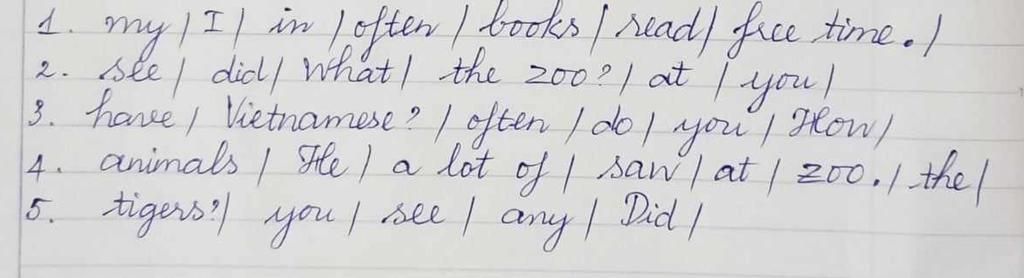 1. my / I / in / often / books / read / free time. /
2. see / did / What / the zoo? / at / you /
3. have / Vietnamese? / often / do / you / How /
4. animals / He / a lot of / saw / at / zoo. / the /
5. tigers? / you / see / any / Did /